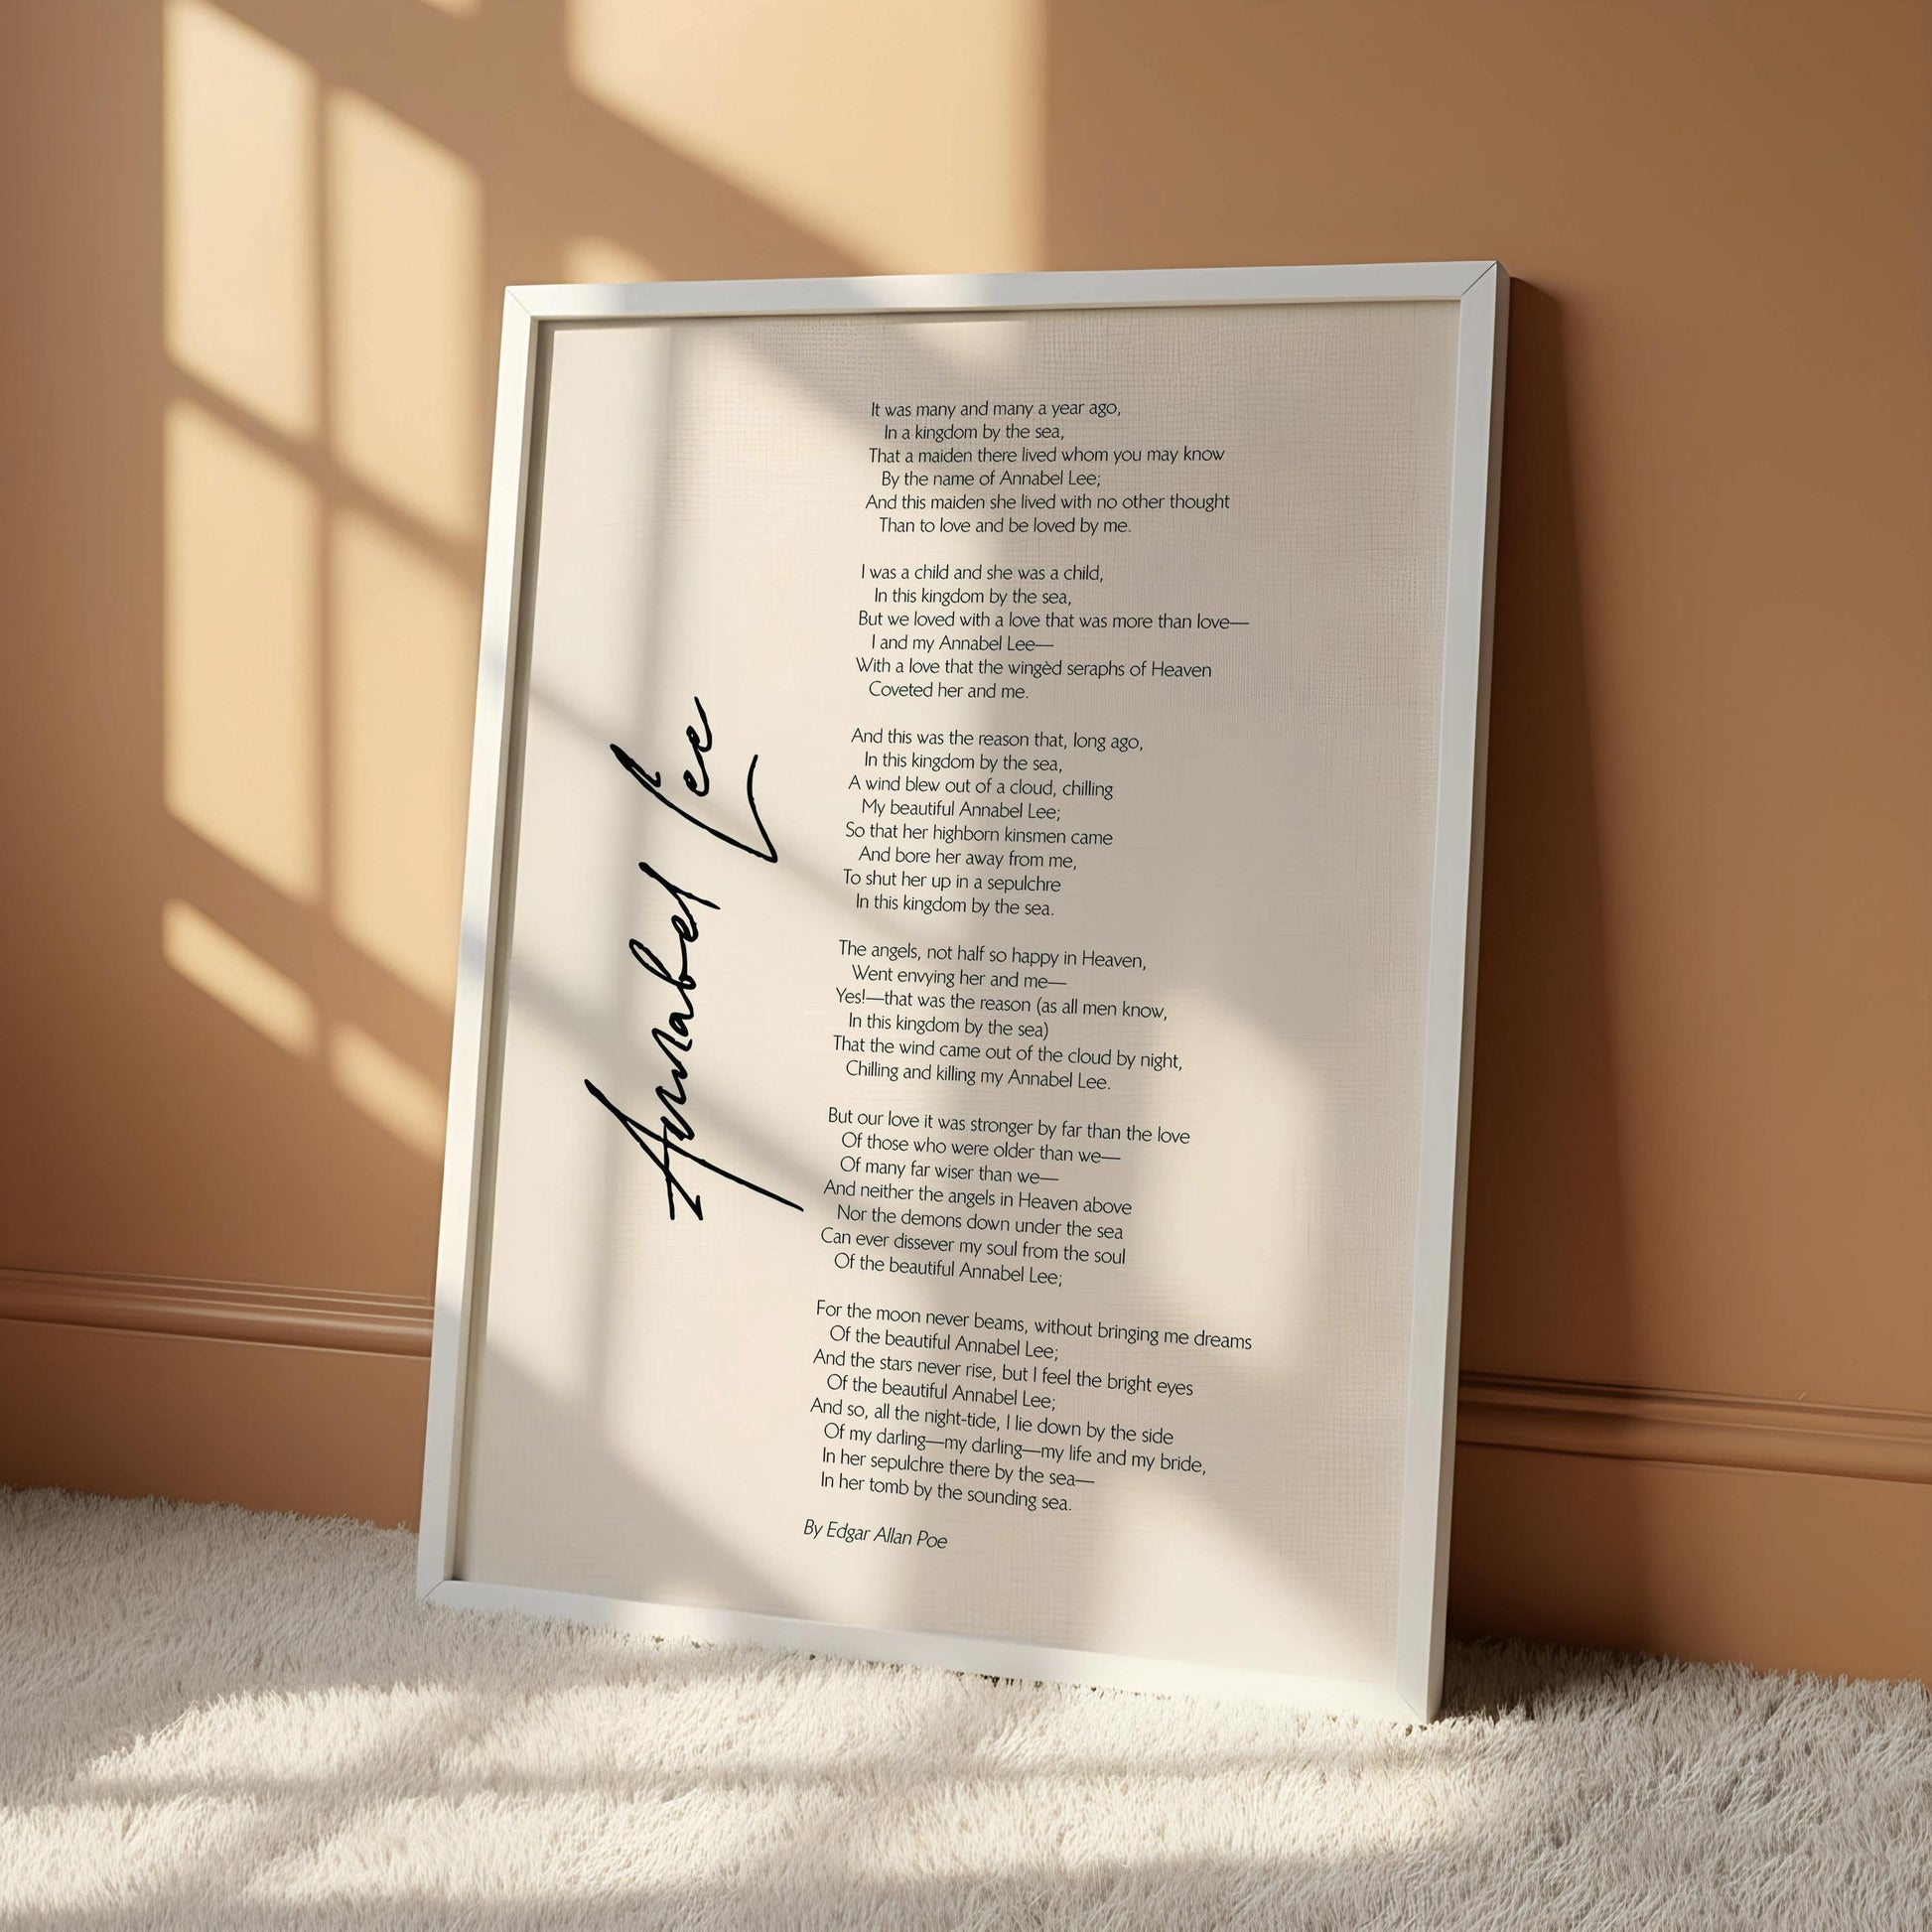 Annabel Lee
It was many and many a year ago,
In a kingdom by the sea,
That a maiden there lived whom you may know
By the name of Annabel Lee;
And this maiden she lived with no other thought
Than to love and be loved by me.
I was a child and she was a child,
In this kingdom by the sea,
But we loved with a love that was more than love—
I and my Annabel Lee—
With a love that the wingèd seraphs of Heaven
Coveted her and me.
And this was the reason that, long ago,
In this kingdom by the sea,
A wind blew out of a cloud, chilling
My beautiful Annabel Lee;
So that her highborn kinsmen came
And bore her away from me,
To shut her up in a sepulchre
In this kingdom by the sea.
The angels, not half so happy in Heaven,
Went envying her and me—
Yes!—that was the reason (as all men know,
In this kingdom by the sea)
That the wind came out of the cloud by night,
Chilling and killing my Annabel Lee.
But our love it was stronger by far than the love
Of those who were older than we—
Of many far wiser than we—
And neither the angels in Heaven above
Nor the demons down under the sea
Can ever dissever my soul from the soul
Of the beautiful Annabel Lee;
For the moon never beams, without bringing me dreams
Of the beautiful Annabel Lee;
And the stars never rise, but I feel the bright eyes
Of the beautiful Annabel Lee;
And so, all the night-tide, I lie down by the side
Of my darling—my darling—my life and my bride,
In her sepulchre there by the sea—
In her tomb by the sounding sea.
By Edgar Allan Poe